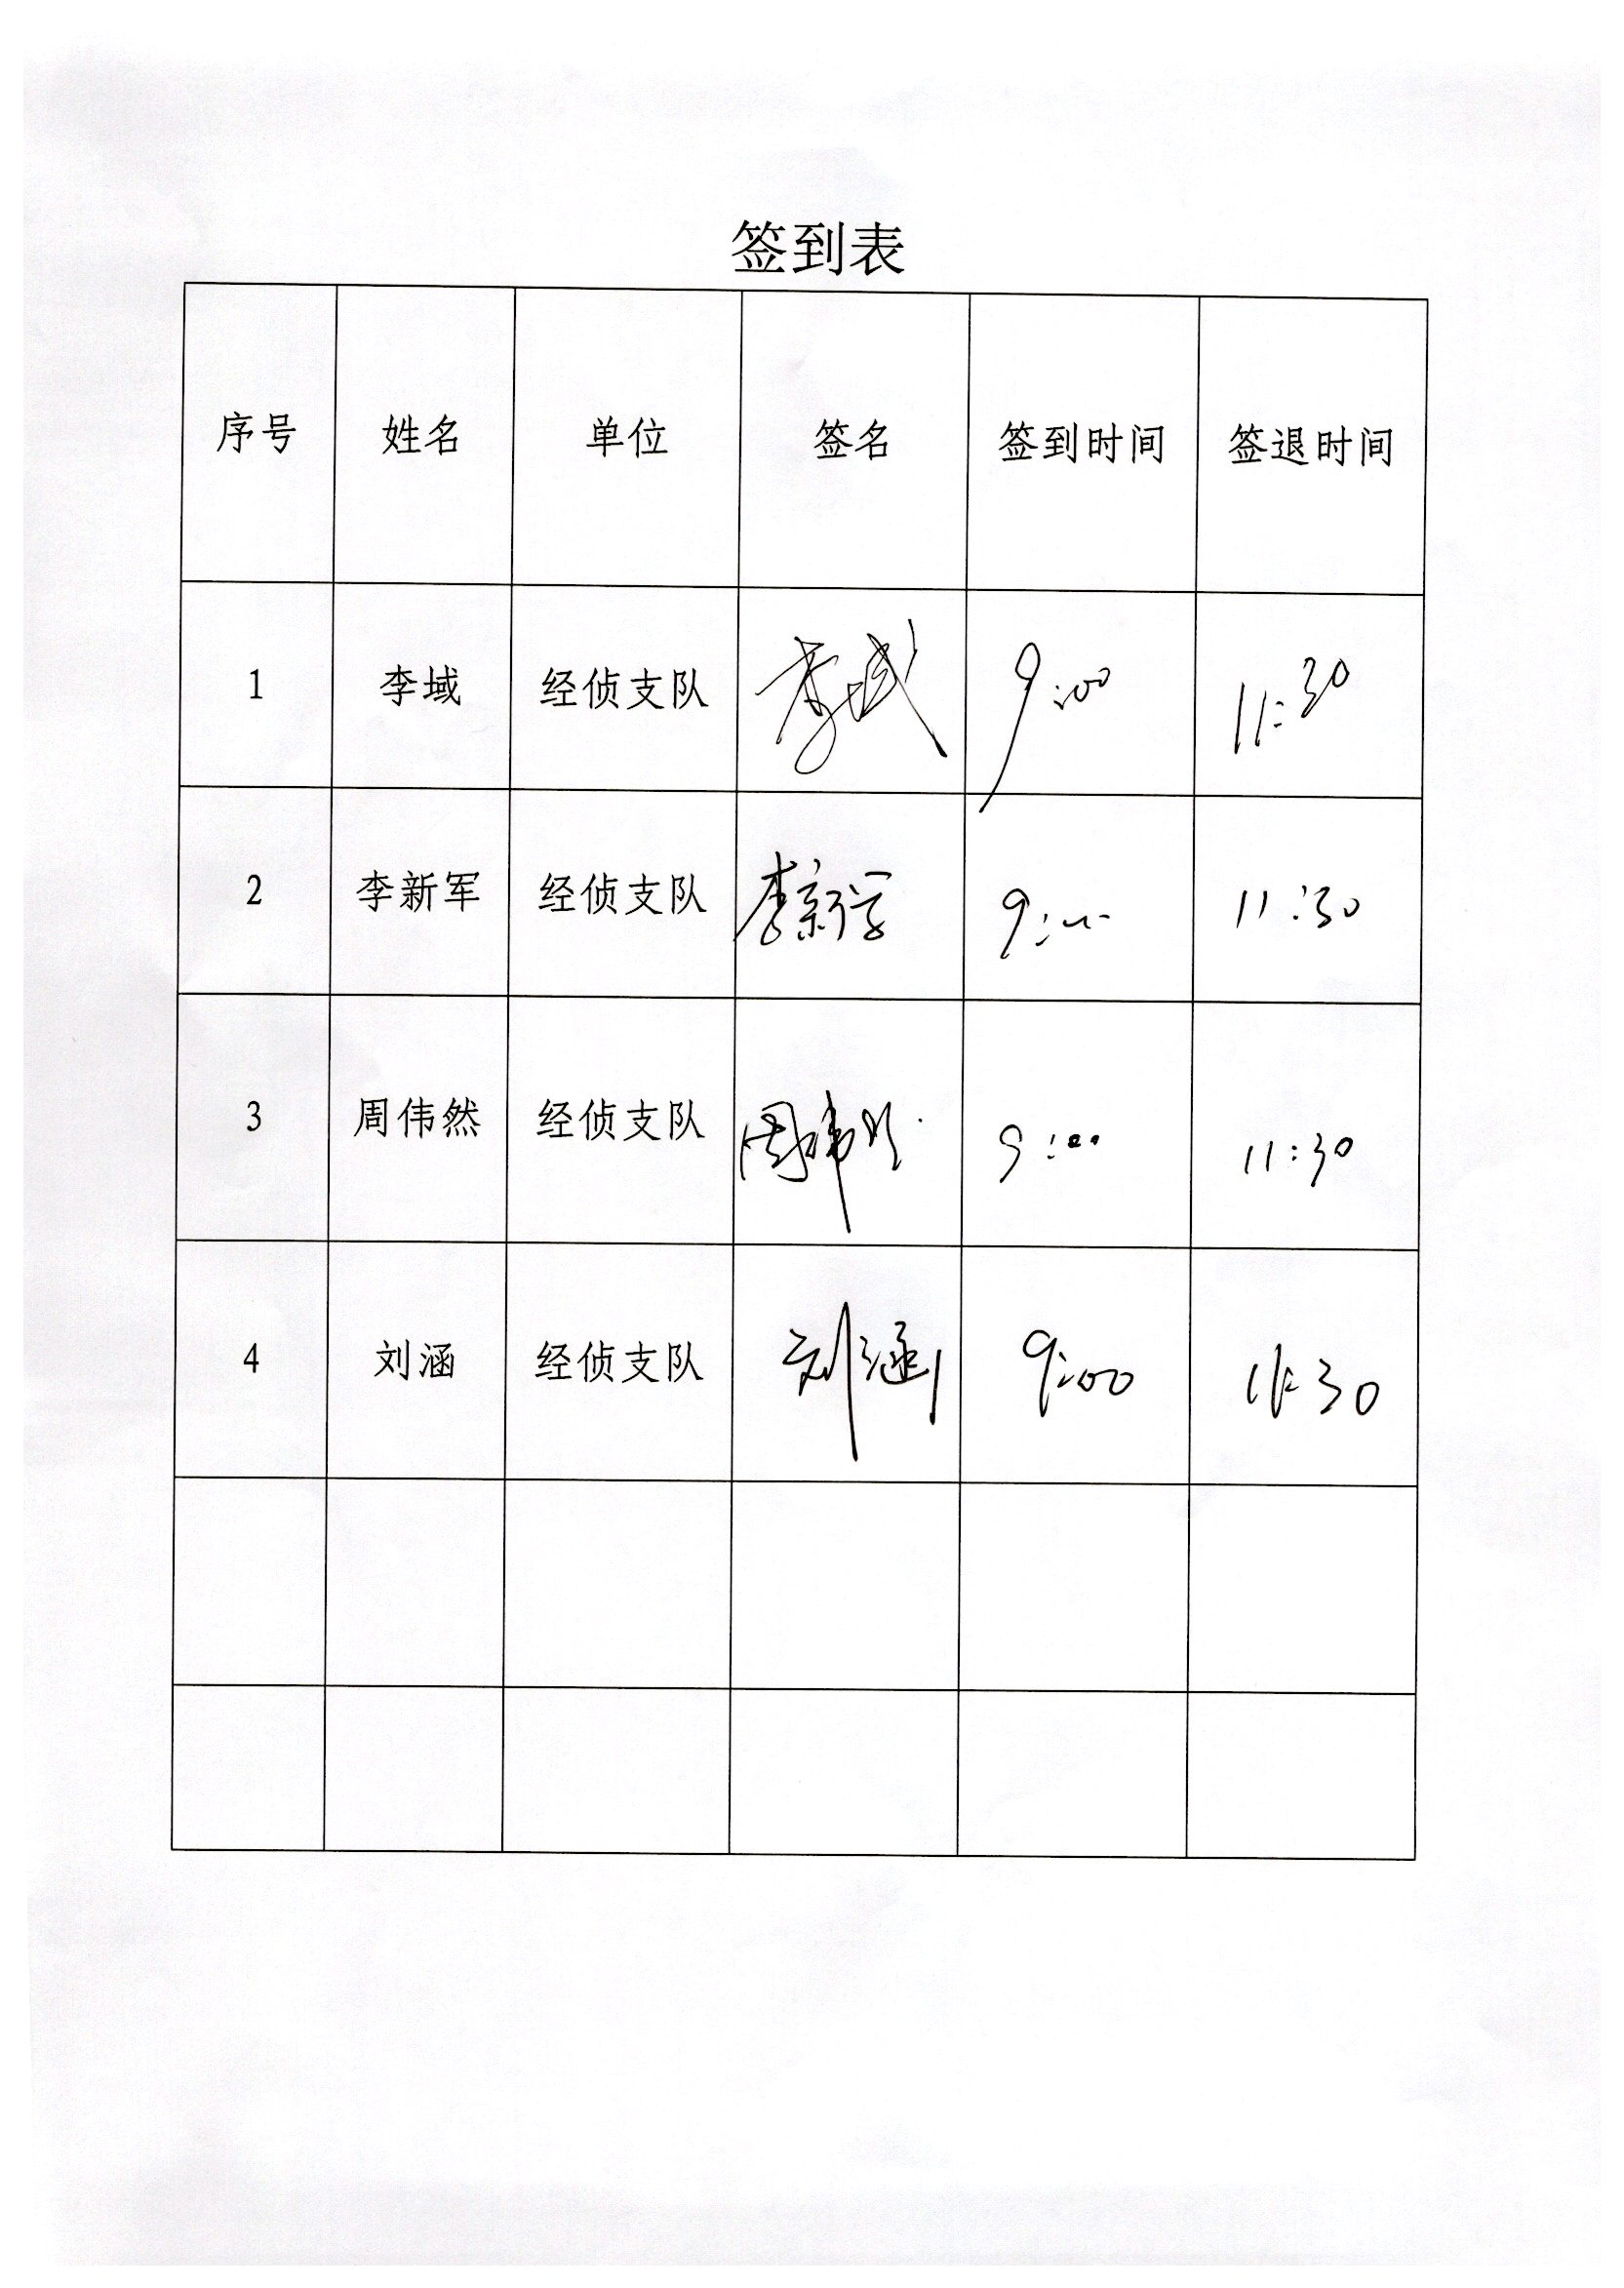 签到表
序号 姓名 单位 签名 签到时间 签退时间
1 李域 经侦支队 李域 9:00 11:30
2 李新军 经侦支队 李新军 9:00 11:30
3 周伟然 经侦支队 周伟然 9:00 11:30
4 刘涵 经侦支队 刘涵 9:00 11:30